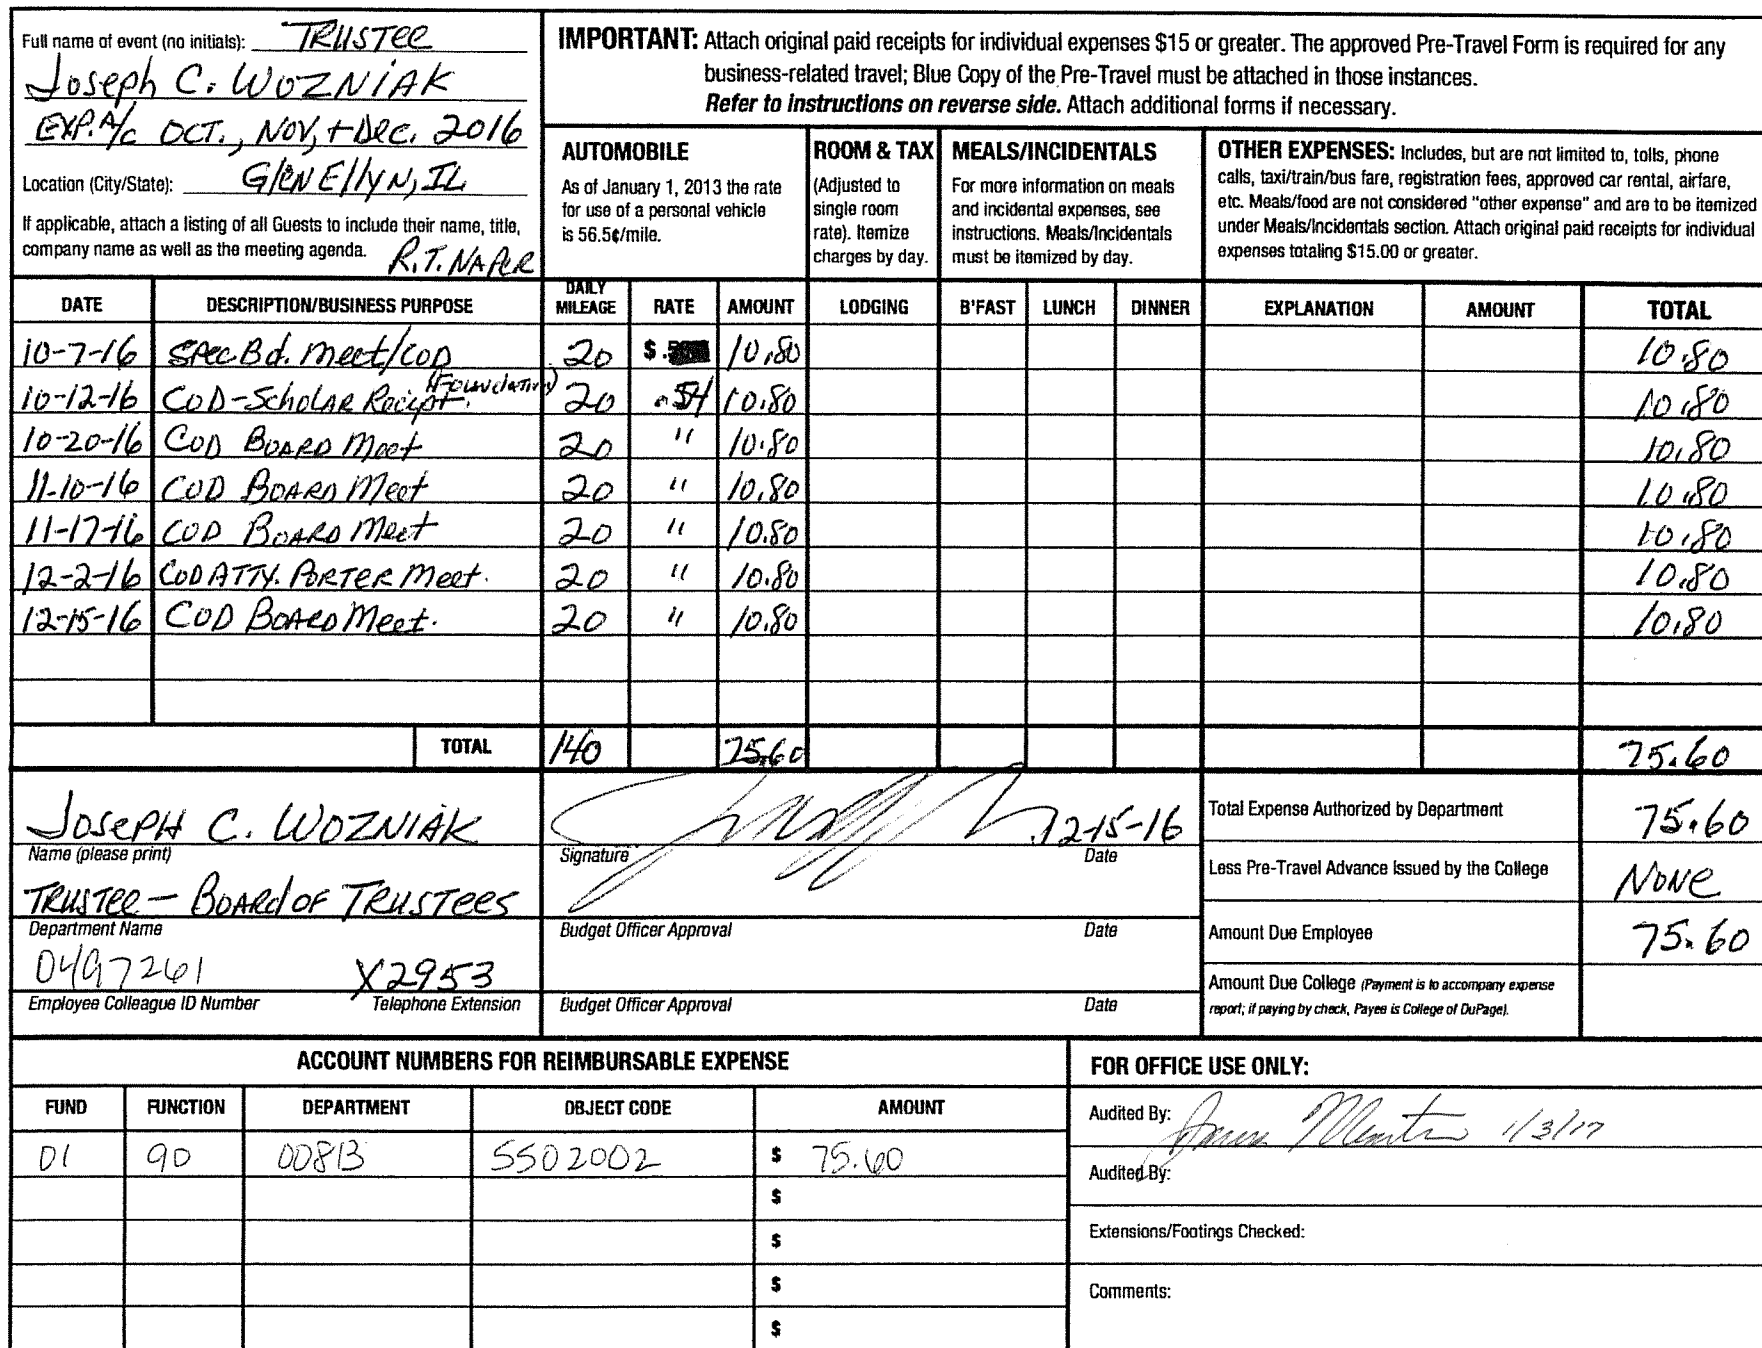 Full name of event (no initials): TRUSTEE
Joseph C. WOZNIAK
EXP. A/c OCT., NOV, + Dec. 2016
Location (City/State): Glen Ellyn, IL
If applicable, attach a listing of all Guests to include their name, title,
company name as well as the meeting agenda. R.T. NAPER
IMPORTANT: Attach original paid receipts for individual expenses $15 or greater. The approved Pre-Travel Form is required for any
business-related travel; Blue Copy of the Pre-Travel must be attached in those instances.
Refer to instructions on reverse side. Attach additional forms if necessary.
AUTOMOBILE
As of January 1, 2013 the rate
for use of a personal vehicle
is 56.5¢/mile.
ROOM & TAX
(Adjusted to
single room
rate). Itemize
charges by day.
MEALS/INCIDENTALS
For more information on meals
and incidental expenses, see
instructions. Meals/Incidentals
must be itemized by day.
OTHER EXPENSES: Includes, but are not limited to, tolls, phone
calls, taxi/train/bus fare, registration fees, approved car rental, airfare,
etc. Meals/food are not considered "other expense" and are to be itemized
under Meals/Incidentals section. Attach original paid receipts for individual
expenses totaling $15.00 or greater.
DATE DESCRIPTION/BUSINESS PURPOSE DAILY MILEAGE RATE AMOUNT LODGING B'FAST LUNCH DINNER EXPLANATION AMOUNT TOTAL
10-7-16 SPEC Bd. Meet/COD 20 $ 10.80 10.80
10-12-16 COD-Scholar Recipt. (Foundation) 20 .54 10.80 10.80
10-20-16 COD BOARD Meet 20 " 10.80 10.80
11-10-16 COD BOARD Meet 20 " 10.80 10.80
11-17-16 COD BOARD Meet 20 " 10.80 10.80
12-2-16 COD ATTY. PORTER Meet. 20 " 10.80 10.80
12-15-16 COD BOARD Meet. 20 " 10.80 10.80
TOTAL 140 75.60 75.60
JOSEPH C. WOZNIAK
Name (please print)
TRUSTEE - BOARD OF TRUSTEES
Department Name
0497261 X2953
Employee Colleague ID Number Telephone Extension
12-15-16
Signature Date
Budget Officer Approval Date
Budget Officer Approval Date
Total Expense Authorized by Department 75.60
Less Pre-Travel Advance Issued by the College NONE
Amount Due Employee 75.60
Amount Due College (Payment is to accompany expense
report; if paying by check, Payee is College of DuPage).
ACCOUNT NUMBERS FOR REIMBURSABLE EXPENSE
FUND FUNCTION DEPARTMENT OBJECT CODE AMOUNT
01 90 00813 5502002 $ 75.60
$
$
$
$
FOR OFFICE USE ONLY:
Audited By: 1/3/17
Audited By:
Extensions/Footings Checked:
Comments: